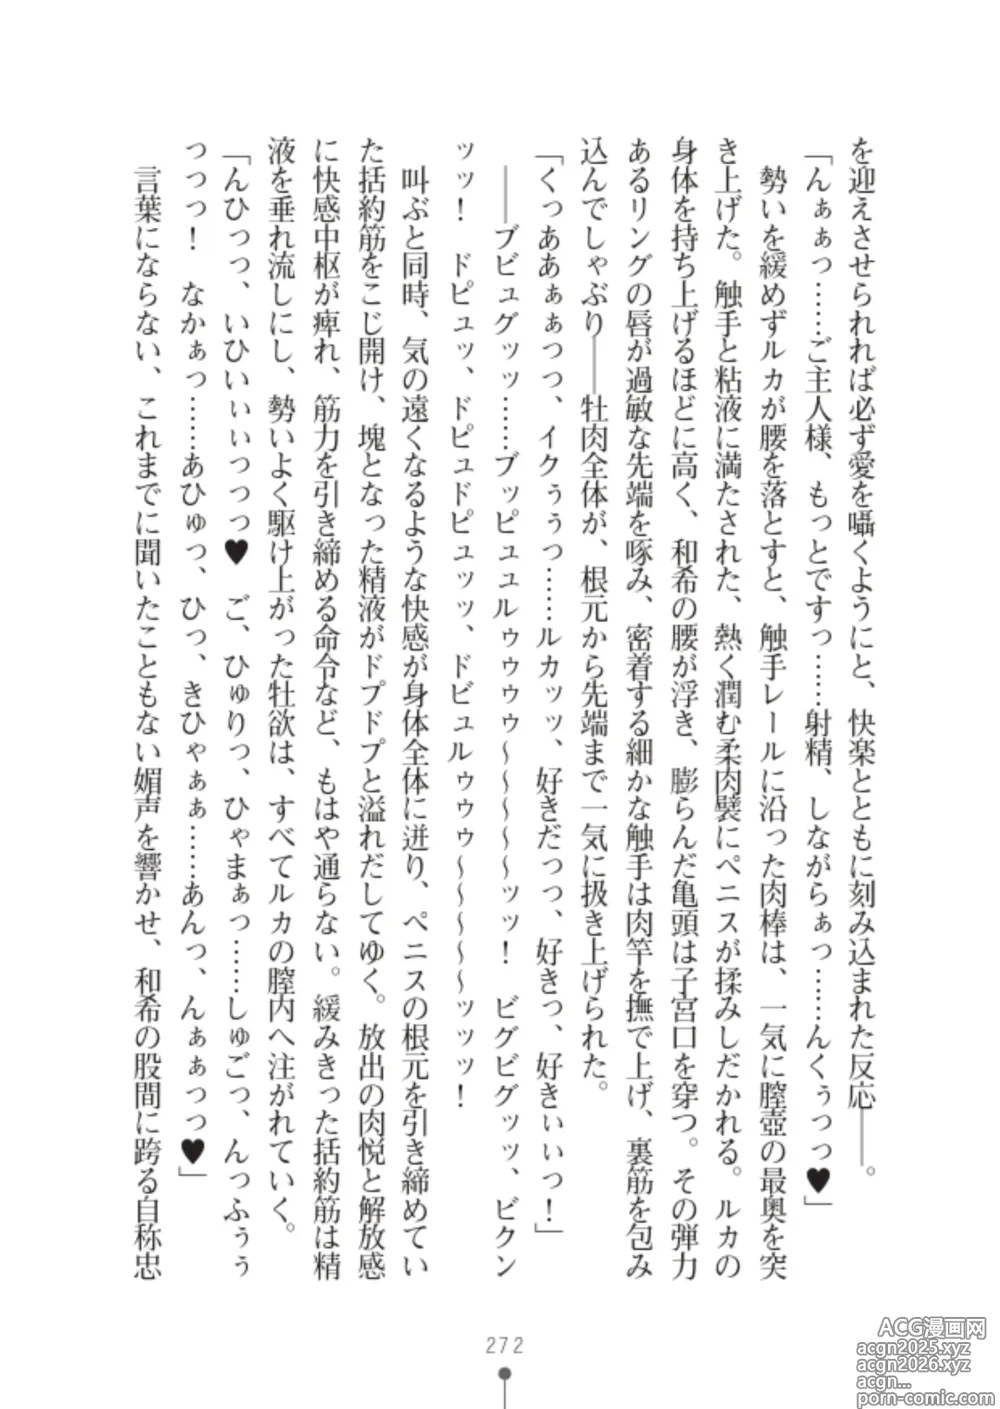 を迎えさせられれば必ず愛を囁くようにと、快楽とともに刻み込まれた反応――。
「んぁぁっ……ご主人様、もっとですっ……射精、しながらぁっ……んくぅっっ♥」
勢いを緩めずルカが腰を落とすと、触手レールに沿った肉棒は、一気に膣壺の最奥を突
き上げた。触手と粘液に満たされた、熱く潤む柔肉襞にペニスが揉みしだかれる。ルカの
身体を持ち上げるほどに高く、和希の腰が浮き、膨らんだ亀頭は子宮口を穿つ。その弾力
あるリングの唇が過敏な先端を啄み、密着する細かな触手は肉竿を撫で上げ、裏筋を包み
込んでしゃぶり――牡肉全体が、根元から先端まで一気に扱き上げられた。
「くっああぁぁっっ、イクぅぅっ……ルカッッ、好きだっっ、好きっ、好きぃぃっ！」
――ブビュグッッ……ブッピュュルゥゥゥゥ～～～～～ッッ！　ビグビグッッ、ビクン
ッッ！　ドピュッ、ドピュドピュッッ、ドビュルゥゥゥ～～～～～ッッッ！
叫ぶと同時、気の遠くなるような快感が身体全体に迸り、ペニスの根元を引き締めてい
た括約筋をこじ開け、塊となった精液がドプドプと溢れだしてゆく。放出の肉悦と解放感
に快感中枢が痺れ、筋力を引き締める命令など、もはや通らない。緩みきった括約筋は精
液を垂れ流しにし、勢いよく駆け上がった牡欲は、すべてルカの膣内へ注がれていく。
「んひっっ、いひいぃぃっっっ♥　ご、ひゅりっ、ひゃまぁっ……しゅごっ、んっふぅぅ
っっっ！　なかぁっ……あひゅっ、ひっ、きひゃぁぁ……あんっ、んぁぁっっ♥」
言葉にならない、これまでに聞いたこともない媚声を響かせ、和希の股間に跨る自称忠
272
ACG漫画网
acgn2025.xyz
acgn2026.xyz
acgn...
porn-comic.com